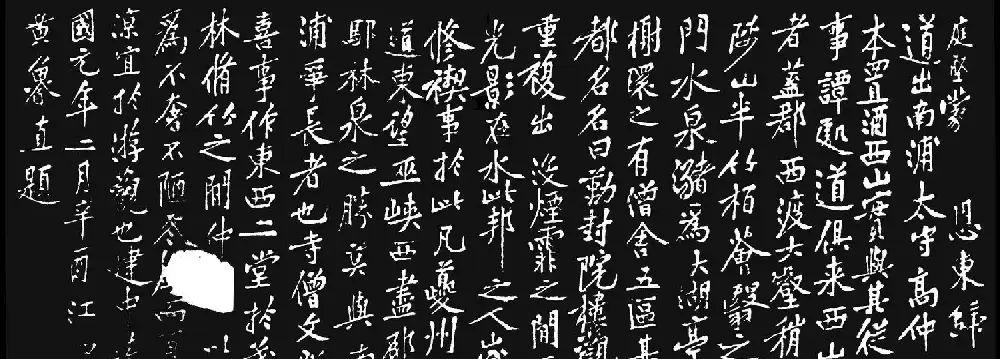 庭堅蒙 恩東歸
道出南浦太守高仲
本置酒西山實與其從
事譚處道俱来西山
者蓋郡西渡大壑稍
陟山半竹栢薈翳之
門水泉瀦為大湖亭
榭環之有僧舍五區其
都名名曰勒封院樓觀
重複出没煙霏之間而
光影在水此邦之人歲
修禊事於此凡夔州
道東望巫峽西盡郁
鄢林泉之勝莫與南
浦爭長者也寺僧文
喜事作東西二堂於茂
林脩竹之間仲以
為不奢不陋冬而夏
涼宜於游觀也建中
國元年二月辛酉江
黃魯直題